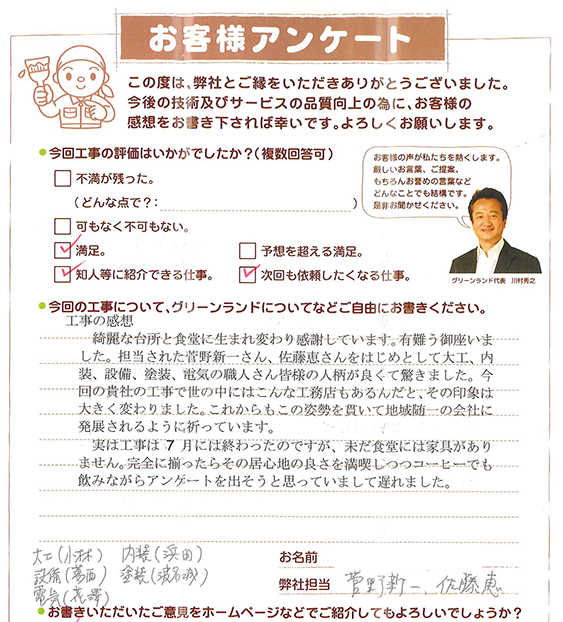 お客様アンケート
この度は、弊社とご縁をいただきありがとうございました。
今後の技術及びサービスの品質向上の為に、お客様の
感想をお書き下されば幸いです。よろしくお願いします。
今回工事の評価はいかがでしたか？（複数回答可）
不満が残った。
（どんな点で？： ）
可もなく不可もない。
満足。
予想を超える満足。
知人等に紹介できる仕事。
次回も依頼したくなる仕事。
お客様の声が私たちを熱くします。
厳しいお言葉、ご提案、
もちろんお誉めの言葉など
どんなことでも結構です。
是非お聞かせください。
グリーンランド代表　川村秀之
今回の工事について、グリーンランドについてなどご自由にお書きください。
工事の感想
綺麗な台所と食堂に生まれ変わり感謝しています。有難う御座いま
した。担当された菅野新一さん、佐藤恵さんをはじめとして大工、内
装、設備、塗装、電気の職人さん皆様の人柄が良くて驚きました。今
回の貴社の工事で世の中にはこんな工務店もあるんだと、その印象は
大きく変わりました。これからもこの姿勢を貫いて地域随一の会社に
発展されるように祈っています。
実は工事は７月には終わったのですが、未だ食堂には家具があり
ません。完全に揃ったらその居心地の良さを満喫しつつコーヒーでも
飲みながらアンケートを出そうと思っていまして遅れました。
大工(小林) 内装(浜田)
設備(葛西) 塗装
電気
お名前
弊社担当 菅野新一、佐藤恵
お書きいただいたご意見をホームページなどでご紹介してもよろしいでしょうか？